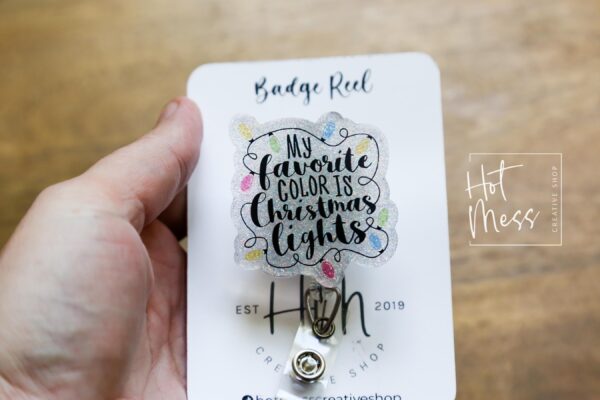 Badge Reel
MY
favorite
COLOR IS
Christmas
lights
EST H h 2019
CREATIVE SHOP
Hot
Mess
CREATIVE SHOP